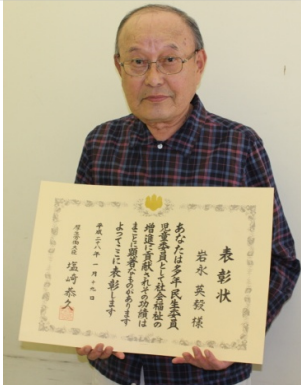 表彰状
岩永英毅様
あなたは多年民生委員
児童委員として社会福祉の
増進に貢献されその功績は
まことに顕著なものがあります
よってここに表彰します
平成二八年一月十九日
厚生労働大臣 塩崎恭久